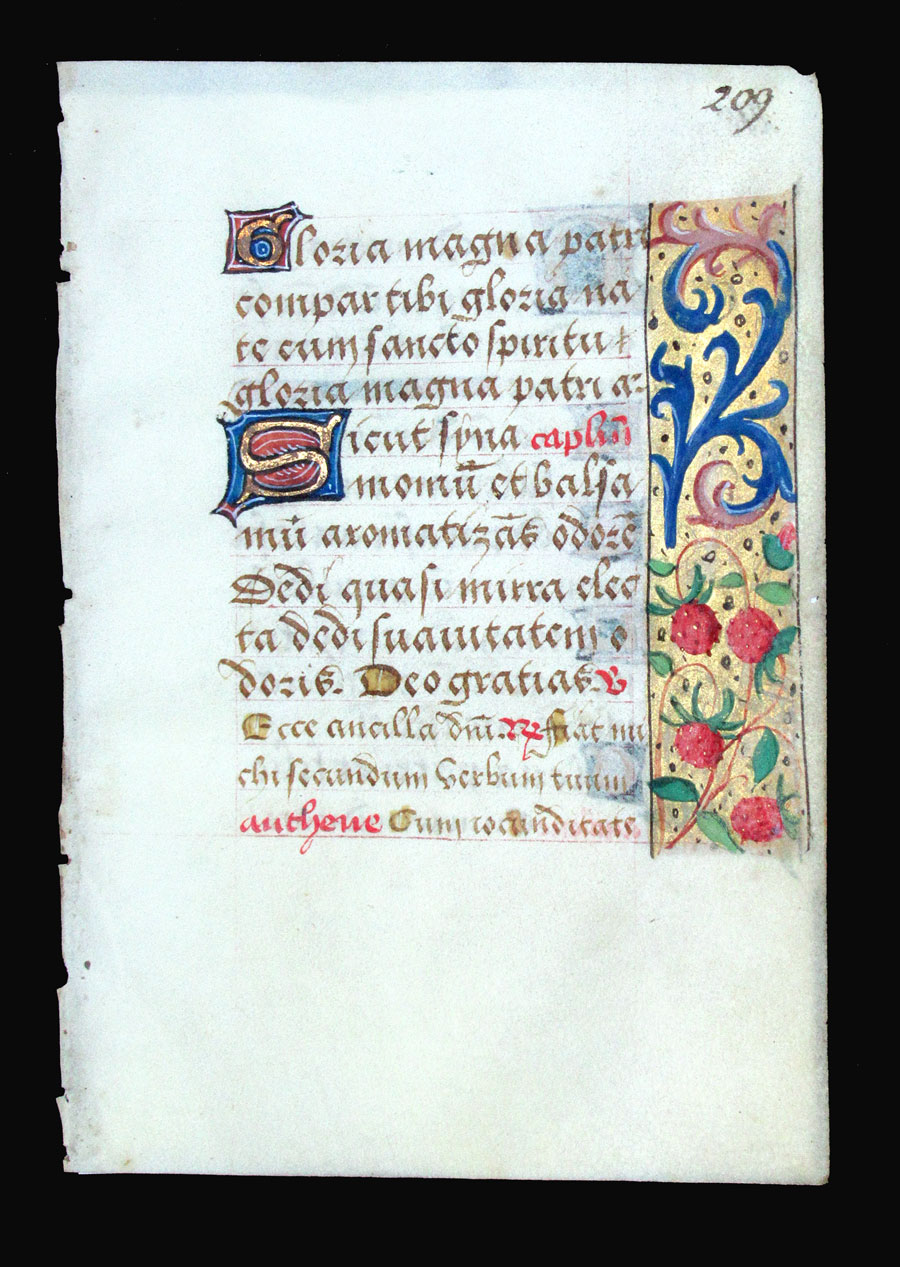 209
Gloria magna patri
compar tibi gloria na
te cum sancto spiritu
gloria magna patri
Sicut syna caplūm
momū et balsa
mū aromatizās odorē
Dedi quasi mirra elec
ta dedi suauitatem o
doris. Deo gratias.
Ecce ancilla dn̄i. fiat mi
chi secundum Verbum tuum
anthene Cum iocunditate